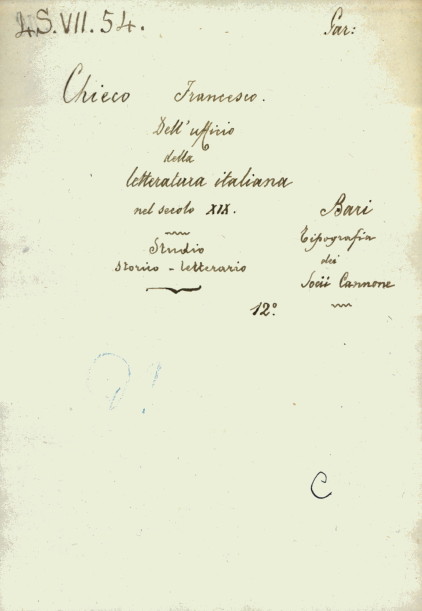 LS.VII.54.
Gar:
Chieco Francesco.
Dell'ufficio
della
letteratura italiana
nel secolo XIX.
Studio
storico - letterario
Bari
Tipografia
dei
Socii Cannone
12º.
C